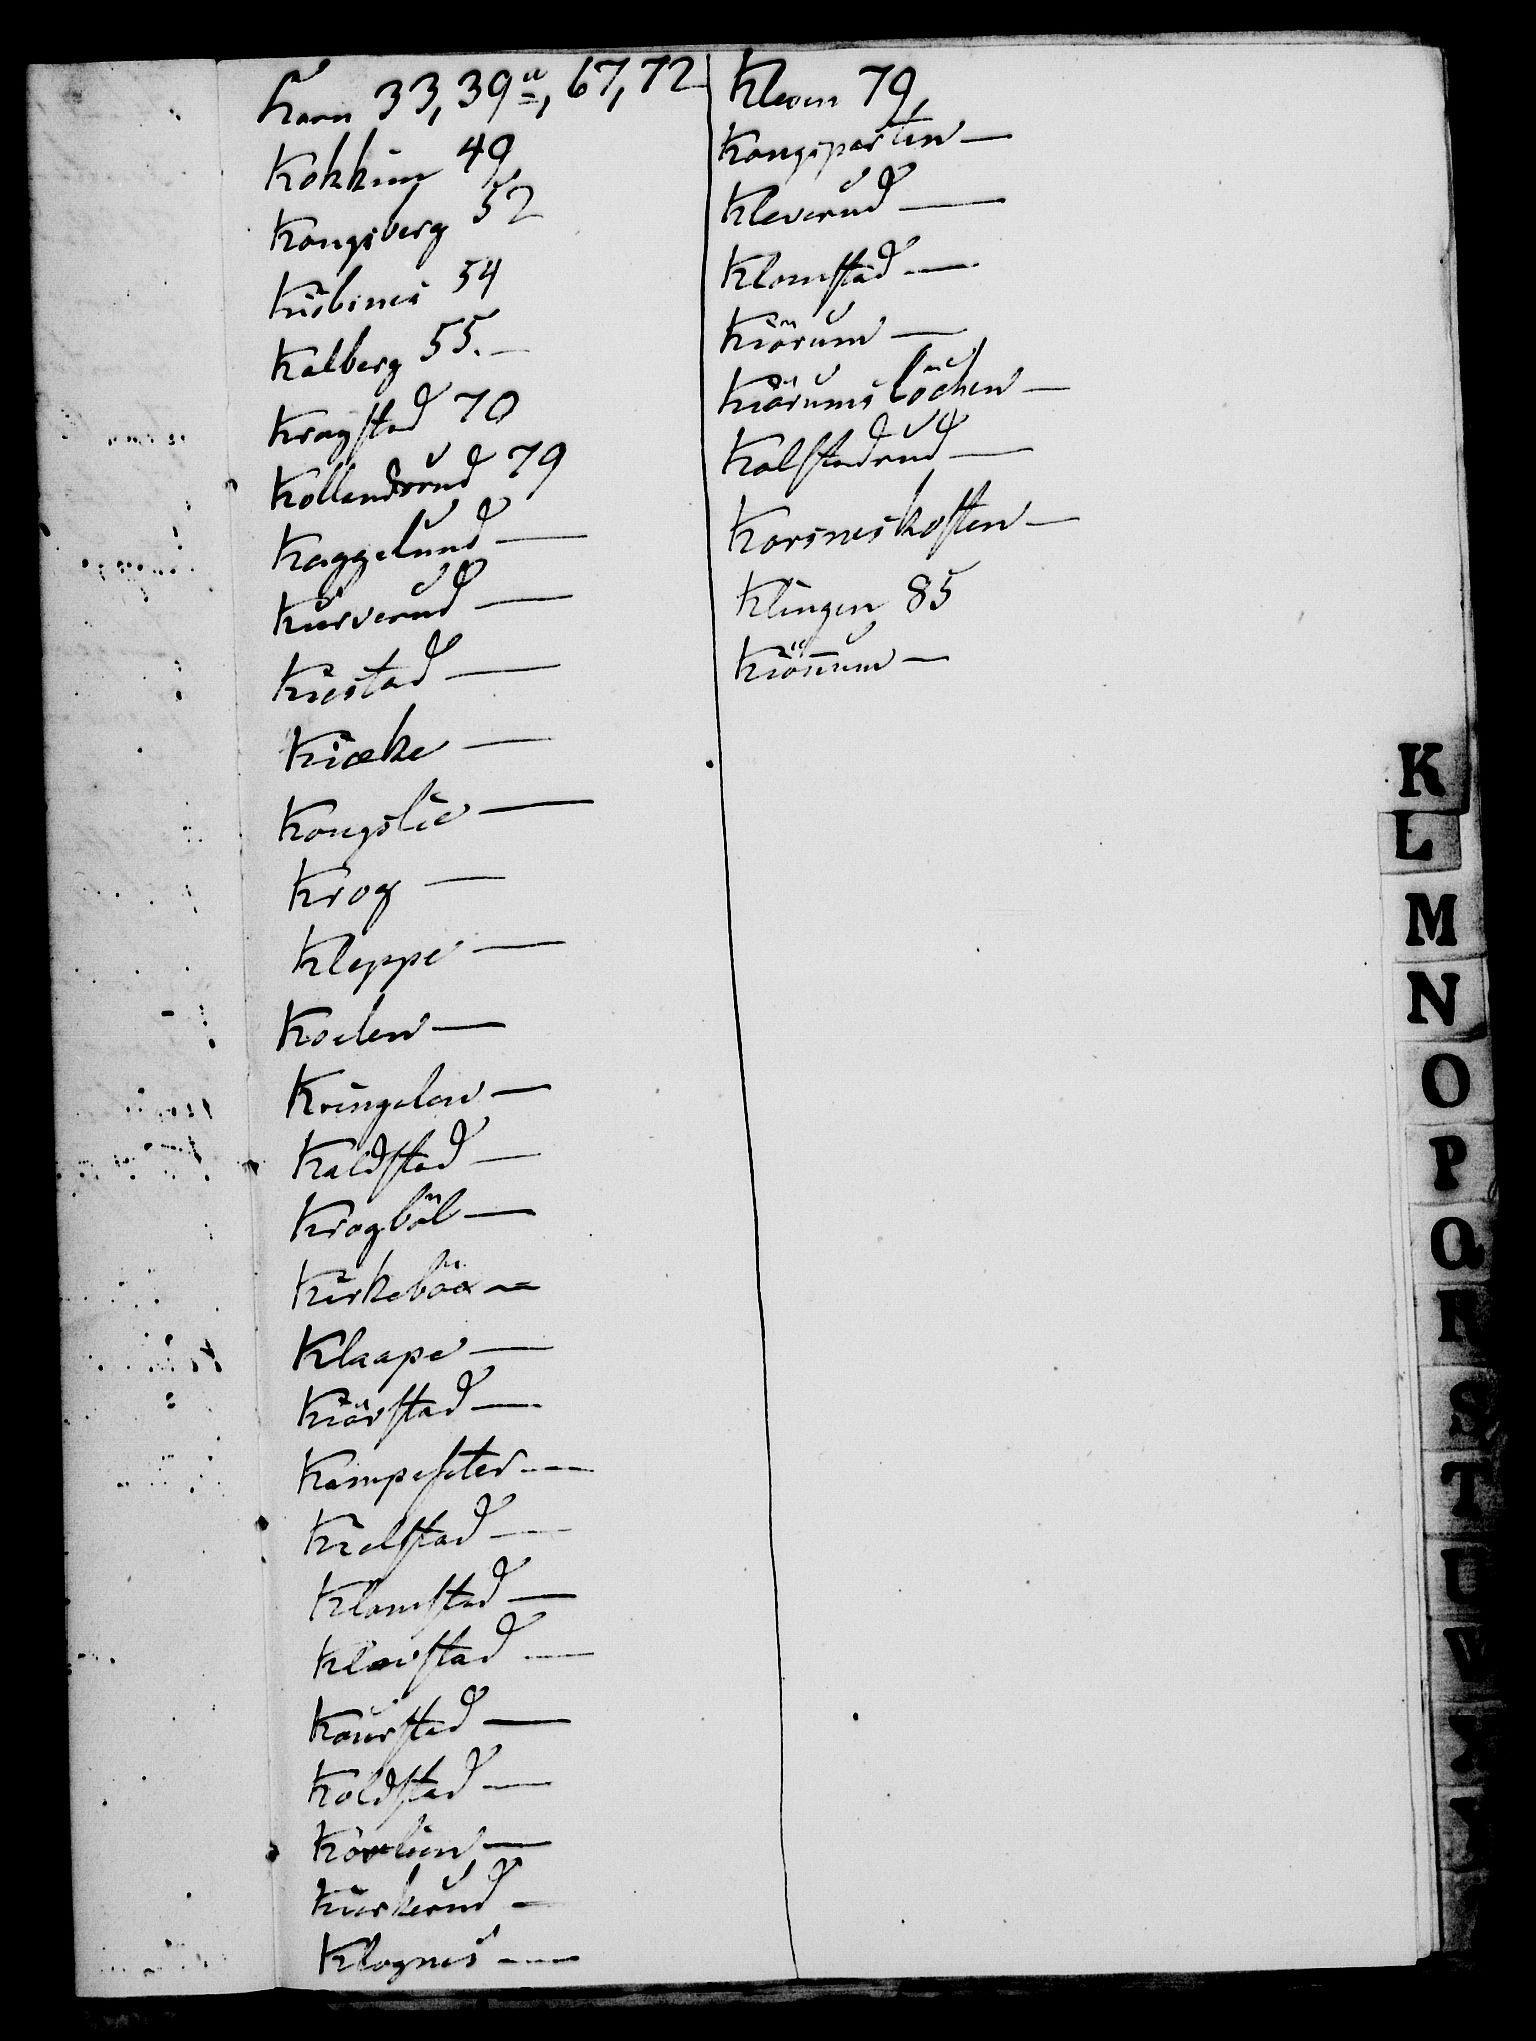 Korn 33, 39a, 67, 72
Kokkim 49
Kongsberg 52
Kiölsnes 54
Kalberg 55. —
Kragstad 70
Kollandsrud 79
Kaggelund —
Kurverud —
Kiestad —
Kiæke —
Kongslie —
Krog —
Kleppe —
Koelen —
Kringelen —
Kaldstad —
Krogböl —
Kirkeböe —
Klaape —
Kiörstad —
Kampesæter —
Kielstad —
Klomstad —
Klævstad —
Kaurstad —
Koldstad —
Kovlien —
Kierkerud —
Klognes —
Kleven 79,
Kongsparten —
Kleverud —
Klomstad —
Kiörum —
Kiörumslöcken —
Kolstadrud —
Korsneskosten —
Klingen 85
Kiönnum —
K
L
M
N
O
P
Q
R
S
T
U